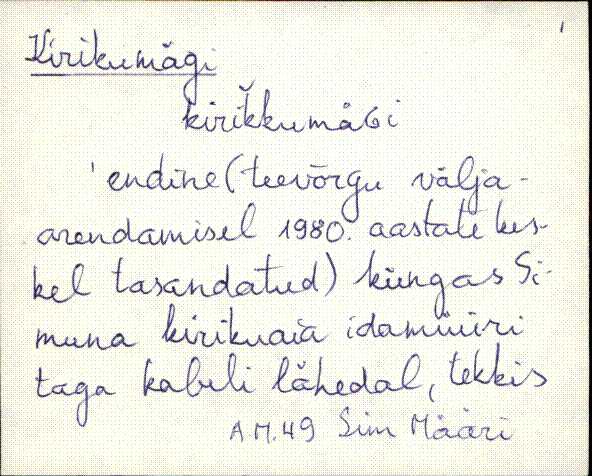 1
Kirikumägi
kirìkkumäGi
'endine (teevõrgu välja-
arendamisel 1980. aastate kes-
kel tasandatud) küngas Si-
muna kirikuaia idamüüri
taga kabeli lähedal, tekkis
A.M.49 Sim Määri